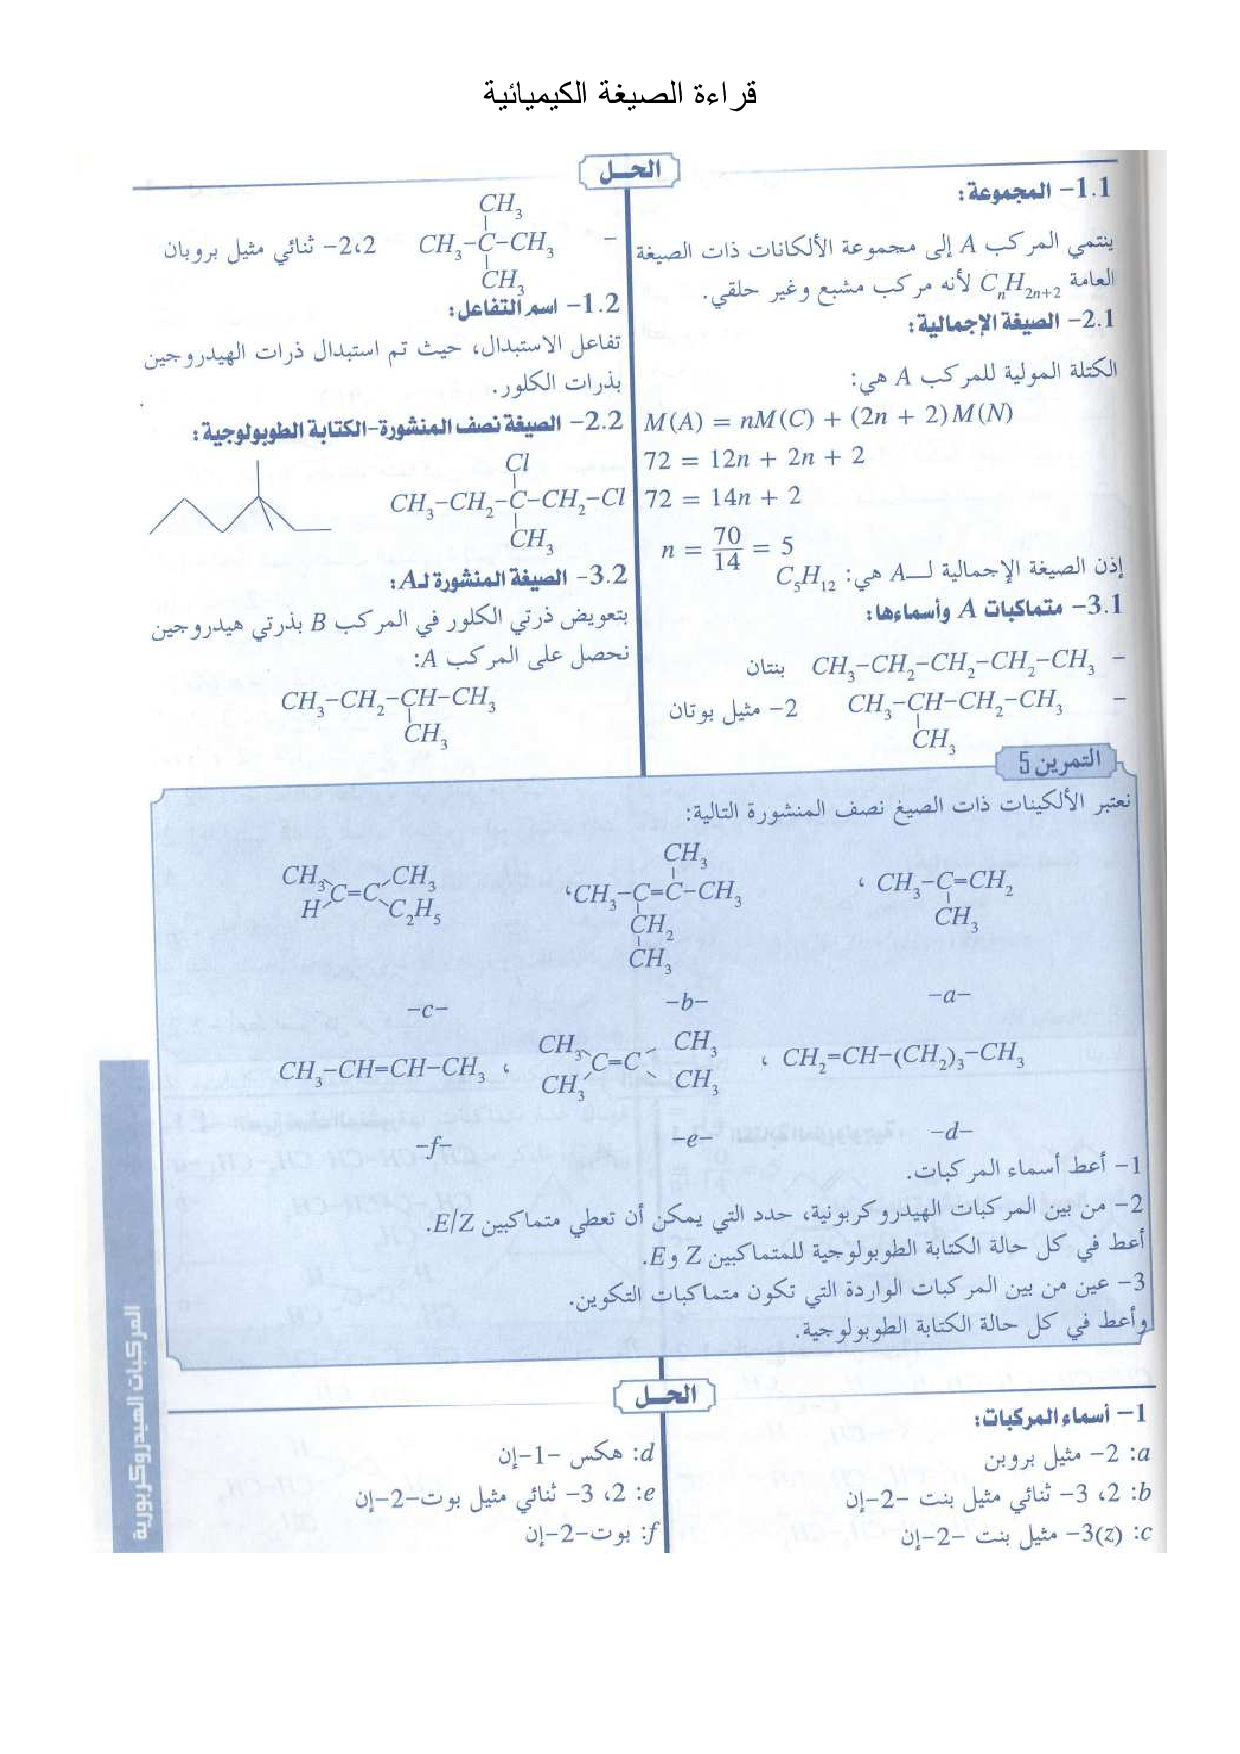 قراءة الصيغة الكيميائية
الحـل
1.1- المجموعة:
ينتمي المركب A إلى مجموعة الألكانات ذات الصيغة
العامة CnH2n+2 لأنه مركب مشبع وغير حلقي.
2.1- الصيغة الإجمالية:
الكتلة المولية للمركب A هي:
M(A) = nM(C) + (2n + 2)M(N)
72 = 12n + 2n + 2
72 = 14n + 2
n = 70/14 = 5
إذن الصيغة الإجمالية لـ A هي: C5H12
3.1- متماكبات A وأسماءها:
- CH3-CH2-CH2-CH2-CH3 بنتان
- CH3-CH-CH2-CH3 2- مثيل بوتان
CH3
CH3
- CH3-C-CH3 2،2- ثنائي مثيل بروبان
CH3
1.2- اسم التفاعل:
تفاعل الاستبدال، حيث تم استبدال ذرات الهيدروجين
بذرات الكلور.
2.2- الصيغة نصف المنشورة-الكتابة الطوبولوجية:
Cl
CH3-CH2-C-CH2-Cl
CH3
3.2- الصيغة المنشورة لـ A:
بتعويض ذرتي الكلور في المركب B بذرتي هيدروجين
نحصل على المركب A:
CH3-CH2-CH-CH3
CH3
التمرين 5
نعتبر الألكينات ذات الصيغ نصف المنشورة التالية:
CH3-C=CH2 ،
CH3
-a-
CH3
CH3-C=C-CH3 ،
CH2
CH3
-b-
CH3 CH3
C=C
H C2H5
-c-
CH2=CH-(CH2)3-CH3 ،
-d-
CH3 CH3
C=C
CH3 CH3
-e-
، CH3-CH=CH-CH3
-f-
1- أعط أسماء المركبات.
2- من بين المركبات الهيدروكربونية، حدد التي يمكن أن تعطي متماكبين E/Z.
أعط في كل حالة الكتابة الطوبولوجية للمتماكبين Z وE.
3- عين من بين المركبات الواردة التي تكون متماكبات التكوين.
وأعط في كل حالة الكتابة الطوبولوجية.
الحـل
1- أسماء المركبات:
a: 2- مثيل بروبن
b: 2، 3- ثنائي مثيل بنت -2-إن
c: (z)3- مثيل بنت -2-إن
d: هكس -1-إن
e: 2، 3- ثنائي مثيل بوت-2-إن
f: بوت-2-إن
المركبات الهيدروكربونية